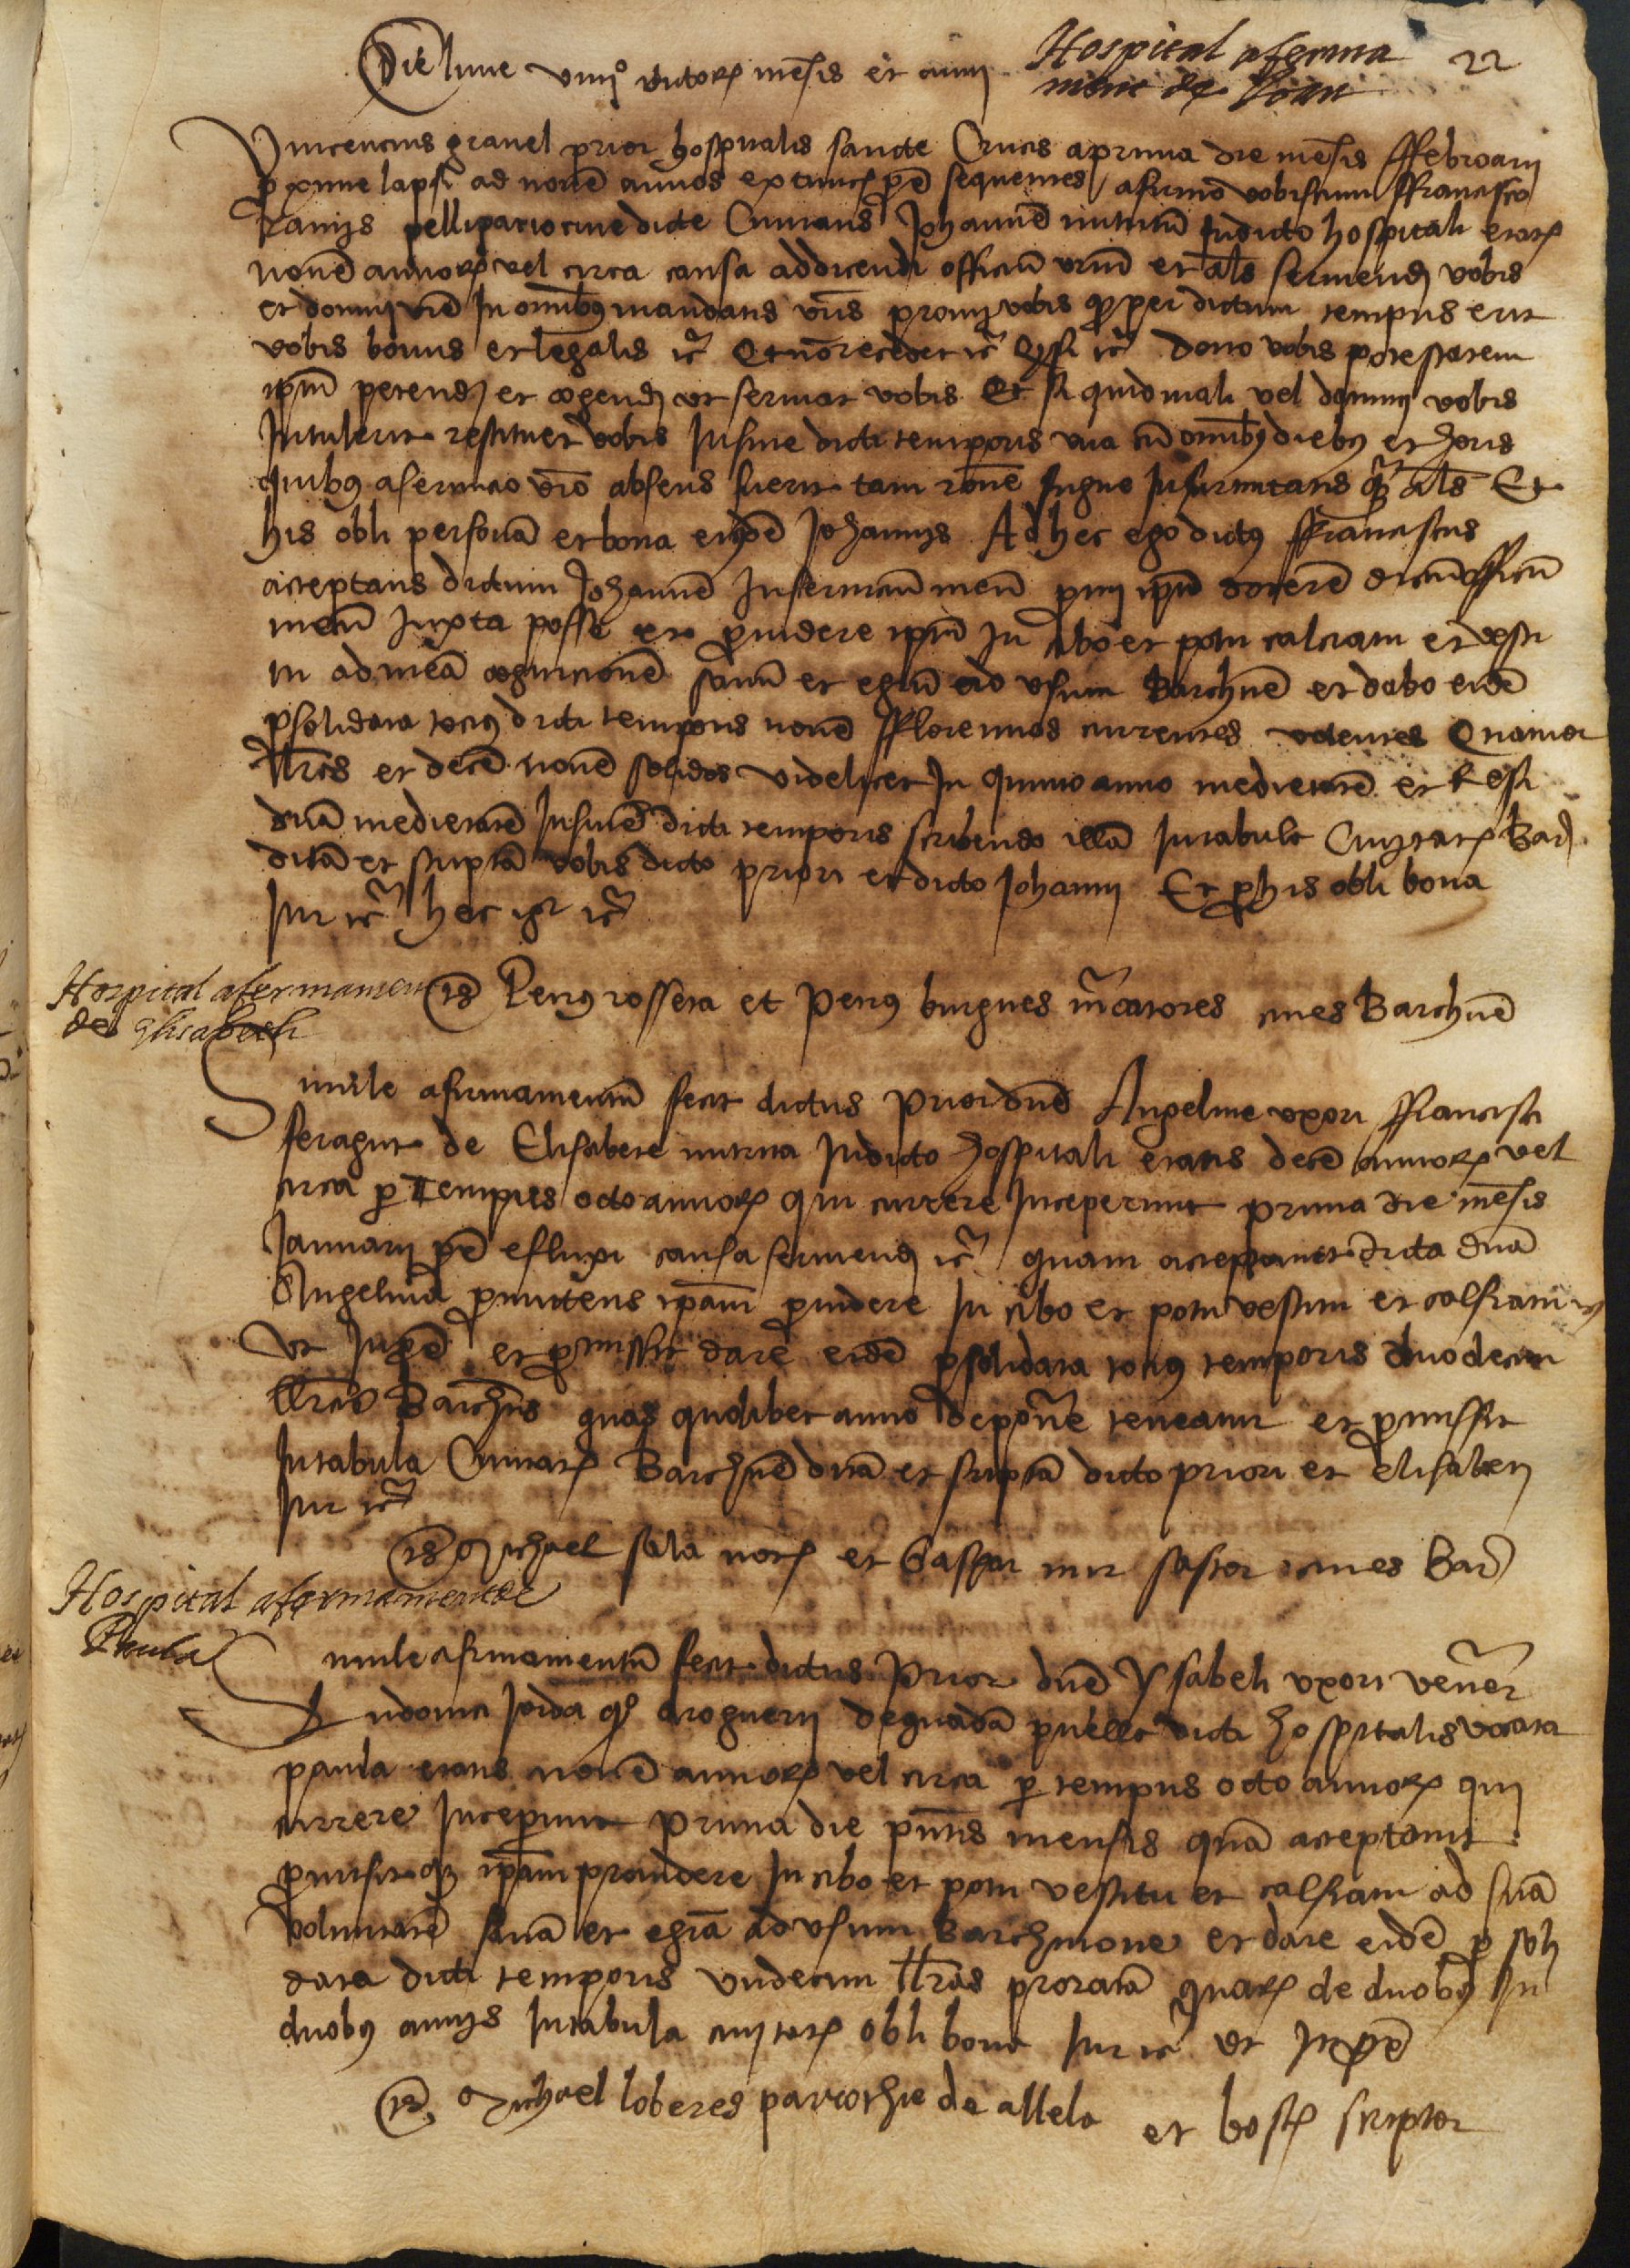 Die lune viiij° dictorum mensis et anni
Hospital aferma
ment de Joan
22
Vincencius gravel prior hospitalis sancte Crucis a prima die mensis ffebroarii
proxime lapsi ad novem annos extunch sequentes afirmo vobiscum ffrancisco
pellipario civi dicte Civitatis Johannem nutritum in dicto hospitali etatis
novem annorum vel circa causa addicendi officium vestrum et als serviendi vobis
et domui vestre in omnibus mandatis vestris promi vobis quod per dictum tempus erit
vobis bonus et legalis etc Et non recedet etc Et si etc dono vobis potestatem
ipsum petendi et cogendi ut serviat vobis Et si quid mali vel dampni vobis
intulerit restituet vobis in fine dicti temporis una cum omnibus diebus et horis
quibus a servicio vestro absens fuerit tam ratione fugue infirmitatis quam als Et
his obli personam et bona eiusdem Johannis Ad hec ego dictus ffranciscus
acceptans dictum Johannem in servicium meum promi ipsum docere dictum officium
meum iuxta posse et providere ipsum in cibo et potu calciatu et vesti
tu ad meam cognicionem sanum et egrum ad usum Barchne et dabo eidem
pro solidata tocius dicti temporis novem fflorennos currentes valentes Quatuor
llrs et decem novem solidos videlicet in quinto anno medietatem et Resi
duam medietatem in fine dicti temporis scribendo illam in tabula Civitatis Bar
ditam et scriptam vobis dicto priori et dicto Johanni Et pro his obli bona
Jur etc hec igr etc
Hospital afermament
de Elisabeth
Ts Petrus rosseta et Petrus burgues mercatores cives Barchne
Simile afirmamentum fecit dictus Prior dne Angeline uxori ffrancisci
feragut de Elisabete nutrita in dicto hospitali etatis decem annorum vel
circa per Tempus octo annorum qui currere inceperunt prima die mensis
Januarii effluxi causa serviendi etc quam acceptavit dicta dna
Angelina promittens ipsam providere in cibo et potu vestitu et calsiatu etc
Ut supra et promissit dare eidem pro solidata tocius temporis duodecim
llras Barchns quas quolibet anno deponere teneatur et promissit
in tabula Civitatis Barchne ditam et scriptam dicto priori et elisabeti
Jur etc
Ts Michael sala notus et Gaspar mir sastor cives Bar
Hospital afermament de
Paula
Simile afirmamentum fecit dictus Prior dne Ysabeli uxori vener
Ludovici Jorda qo droguerii de quadam puella dicti hospitalis vocata
paula etatis novem annorum vel circa per tempus octo annorum qui
currere inceperunt prima die presentis mensis quam acceptavit
promisitque ipsam providere in cibo et potu vestitu et calsiatu ad suam
voluntatem sanam et egram ad usum Barchinone et dare eidem pro soli
data dicti temporis undecim llras pro rata quarum de duobus in
duobus annis in tabula civitatis obli bona Jur etc ut supra
Ts Michael loberes parrochie de allela et bosch scriptor